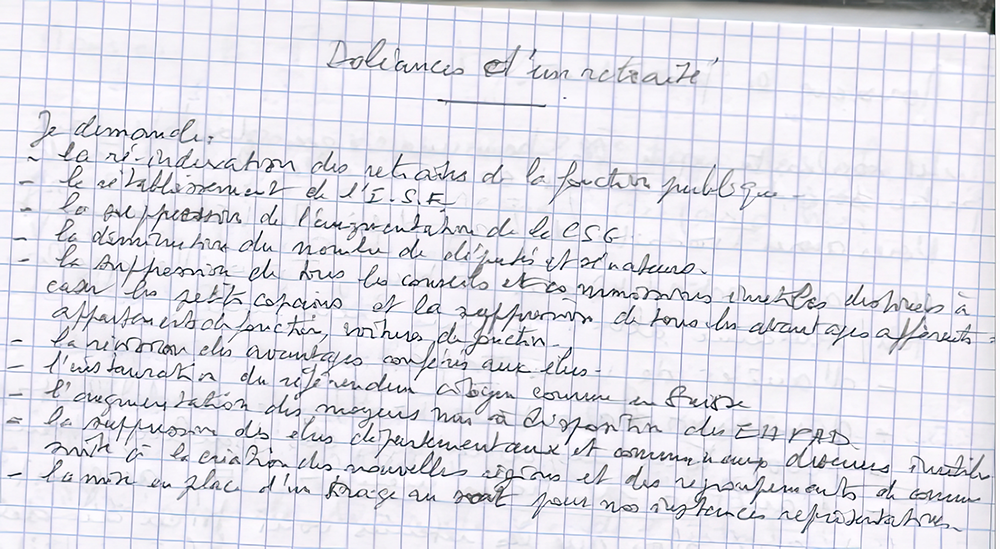 Doléances d'un retraité
Je demande:
- la ré-indexation des retraites de la fonction publique -
- le rétablissement de l'I.S.F
- la suppression de l'augmentation de la CSG
- la diminution du nombre de députés et sénateurs.
- la suppression de tous les conseils et commissions inutiles destinés à
caser les petits copains et la suppression de tous les avantages afférents =
appartements de fonction, voitures de fonction.
- la révision des avantages conférés aux élus -
- l'instauration du référendum citoyen comme en Suisse
- l'augmentation des moyens mis à disposition des EHPAD
- la suppression des élus départementaux et communaux devenus inutiles
suite à la création des nouvelles régions et des regroupements de commune
- la mise en place d'un tirage au sort pour nos instances représentatives -